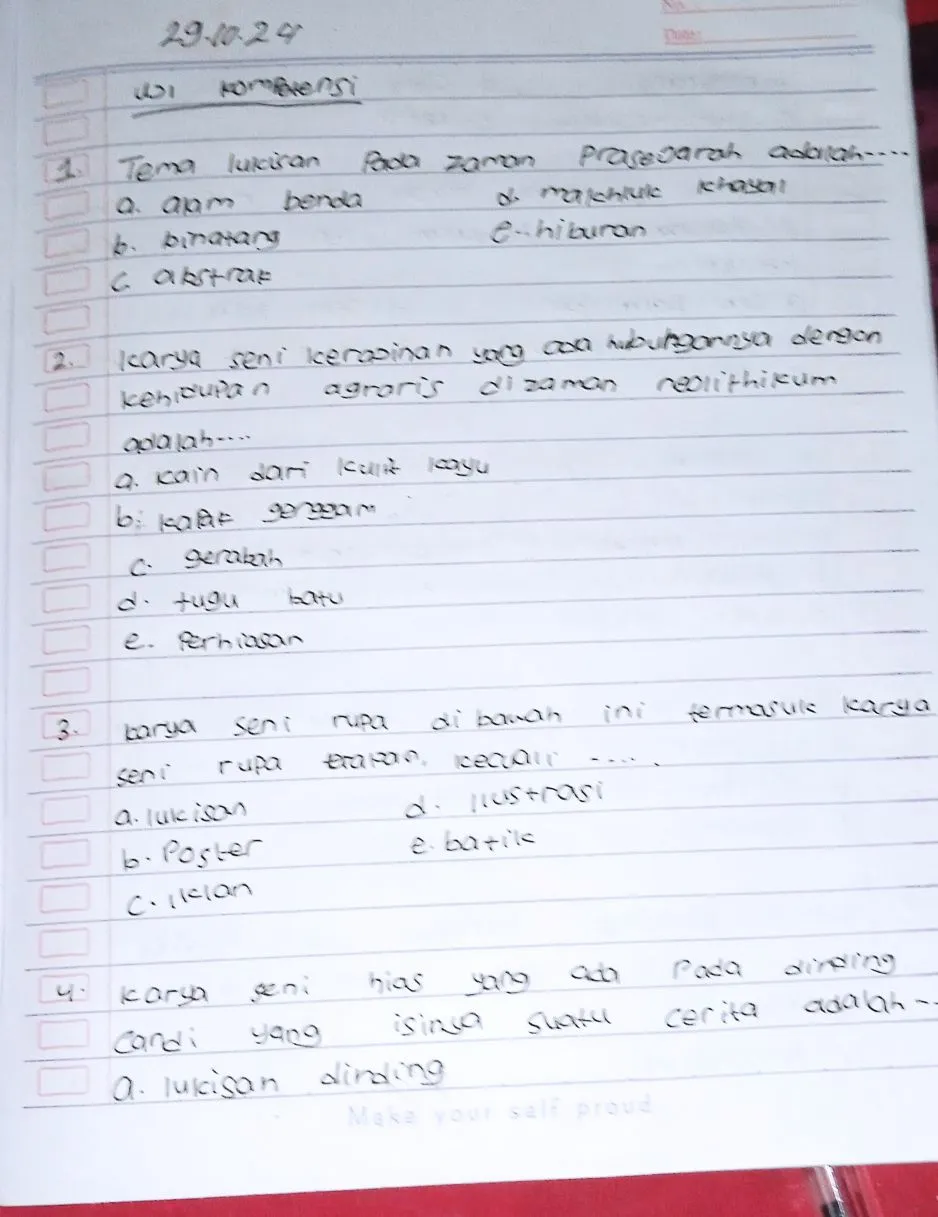 No.
Date:
29.10.24
Uji Kompetensi
1. Tema lukisan Pada zaman Prasejarah adalah....
a. alam benda d. makhluk khayal
b. binatang e. hiburan
c. abstrak
2. karya seni kerajinan yang ada hubungannya dengan
kehidupan agraris di zaman neolithikum
adalah....
a. kain dari kulit kayu
b. kapak genggam
c. gerabah
d. tugu batu
e. Perhiasan
3. karya seni rupa di bawah ini termasuk karya
seni rupa terapan, kecuali ....
a. lukisan d. ilustrasi
b. Poster e. batik
c. iklan
4. karya seni hias yang ada Pada dinding
candi yang isinya suatu cerita adalah --
a. lukisan dinding
Make your self proud